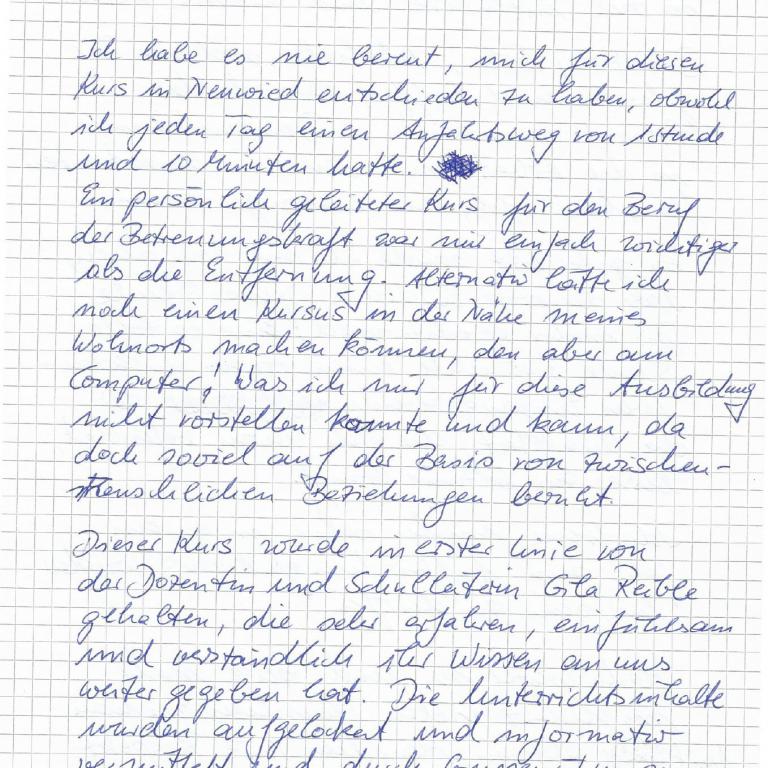 Ich habe es nie bereut, mich für diesen
Kurs in Neuwied entschieden zu haben, obwohl
ich jeden Tag einen Anfahrtsweg von 1 Stunde
und 10 Minuten hatte.
Ein persönlich geleiteter Kurs für den Beruf
der Betreuungskraft war mir einfach wichtiger
als die Entfernung. Alternativ hätte ich
noch einen Kursus in der Nähe meines
Wohnorts machen können, den aber am
Computer! Was ich mir für diese Ausbildung
nicht vorstellen konnte und kann, da
doch soviel auf der Basis von zwischen-
menschlichen Beziehungen beruht.
Dieser Kurs wurde in erster Linie von
der Dozentin und Schulleiterin Gila Reible
gehalten, die sehr erfahren, einfühlsam
und verständlich ihr Wissen an uns
weiter gegeben hat. Die Unterrichtsinhalte
wurden aufgelockert und informativ
vermittelt und durch